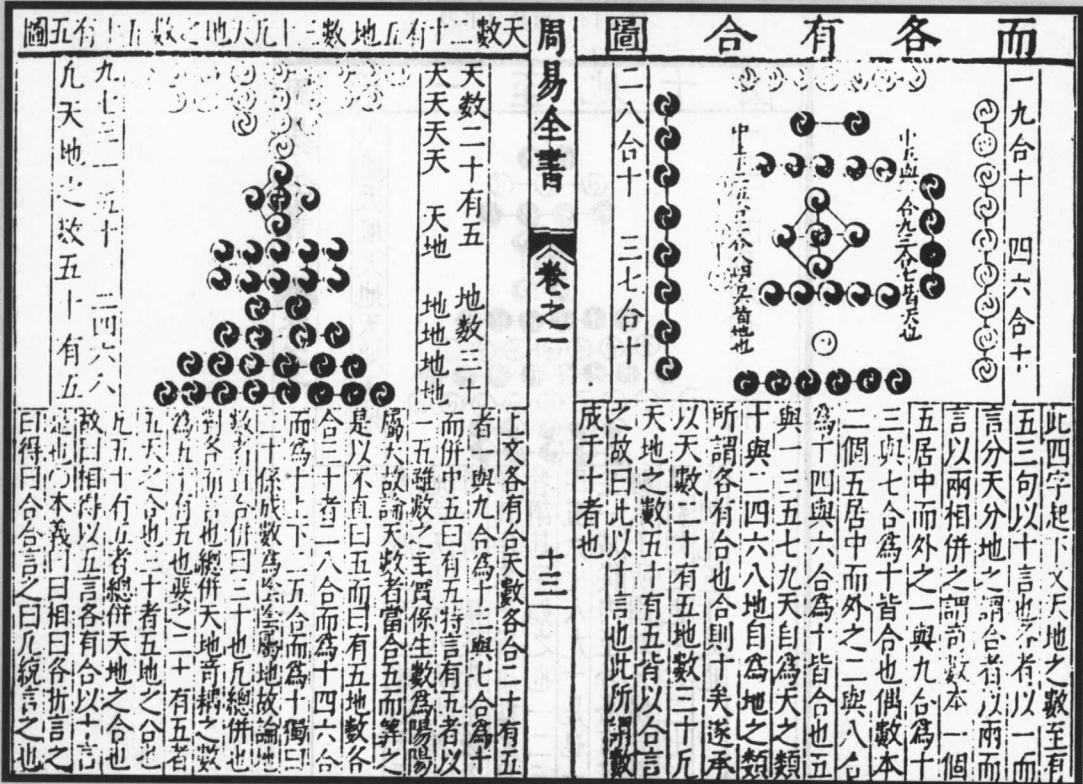 而各有合圖
一九合十 四六合十
中五與一合九三合七皆天也
二八合十 三七合
此四字起下文天地之數至有
五三句以十言也合者以一而
言分天分地之謂合者以兩而
言以兩相併之謂前數本一個
五居中而外之一與九合爲十
三與七合爲十皆合也偶數本
二個五居中而外之二與八合
爲十四與六合爲十皆合也五
與一三五七九天自爲天之類
十與二四六八地自爲地之類
所謂各有合也合則十矣遂承
以天數二十有五地數三十凡
天地之數五十有五皆以合言
之故曰此以十言也此所謂數
成于十者也
周易全書 卷之一 十三
天數二十有五地數三十凡天地之數五十有五圖
天數二十有五 地數三十
天天天天 天地 地地地地
九七三一五十 二四六八
凡天地之數五十有五
上文各有合天數各合二十有五
者一與九合爲十三與七合爲十
而併中五曰有五特言有五者以
一五雖數之主實係生數爲陽陽
屬天故論天數者當合五而算之
是以不直曰五而曰有五地數各
合三十者二八合而爲十四六合
而爲十上下二五合而爲十獨曰
三十係成數爲陰陰屬地故論地
數者直合併曰三十也凡總併也
對各而言也總併天地奇耦之數
爲五十有五也要之二十有五者
五天之合也三十者五地之合也
凡五十有五者總併天地之合也
故曰相得以五言各有合以十言
是也○本義曰曰相曰各折言之
曰得曰合合言之曰凡統言之也